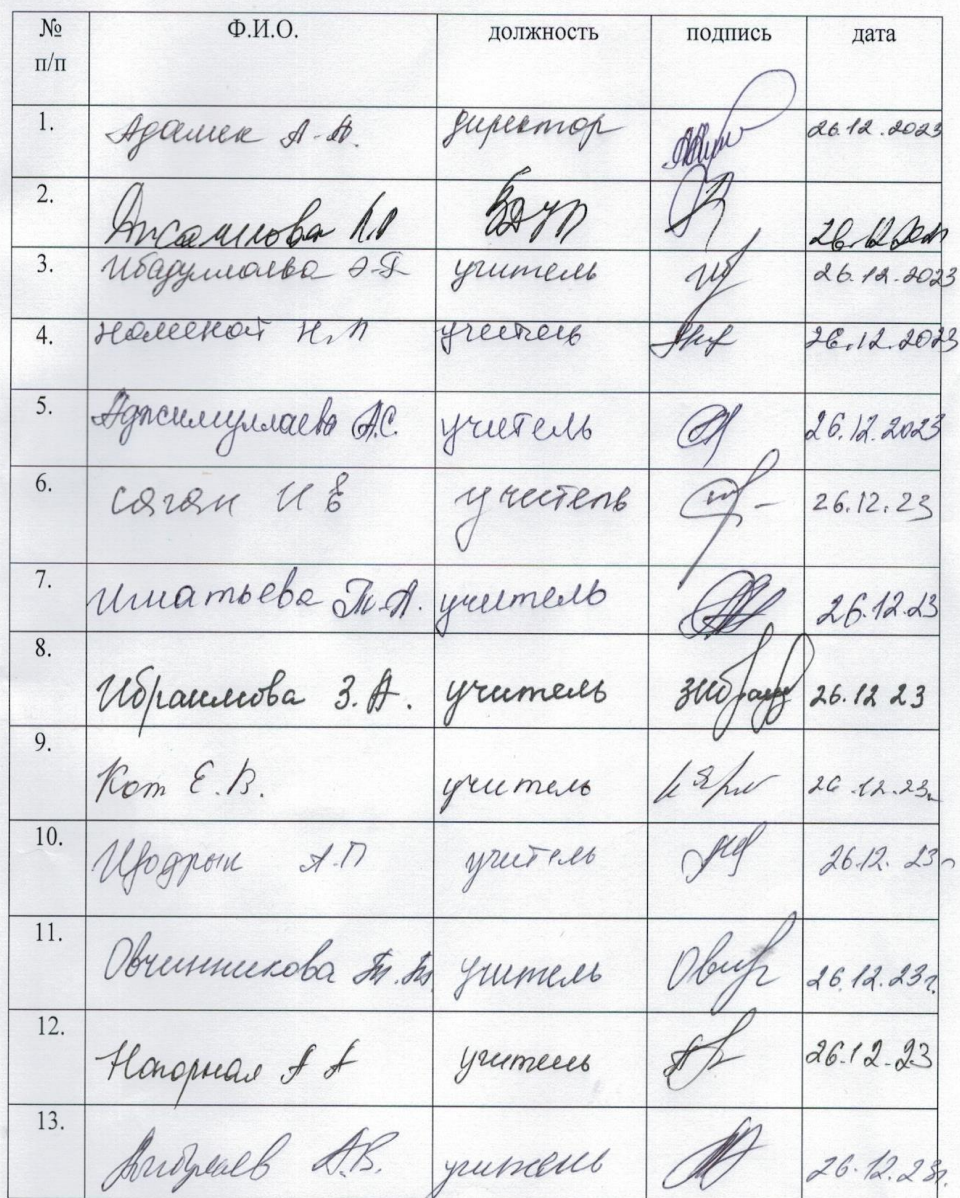 № п/п Ф.И.О. должность подпись дата
1. Адамек А.А. директор 26.12.2023
2. Джамилова ЗДУП 26.12
3. Ибадуллаева Э. учитель 26.12.2023
4. Наменат Н.П учитель 26.12.2023
5. Аджимуллаева А.С. учитель 26.12.2023
6. Саган И Е учитель 26.12.23
7. Игнатьева Т.А. учитель 26.12.23
8. Ибраимова З.А. учитель 26.12 23
9. Кот Е.В. учитель 26.12.23г
10. Щодрык А.П учитель 26.12. 23г
11. Овчинникова Т. учитель 26.12.23г.
12. Нагорная А А учитель 26.12.23
13. А.В. учитель 26.12.23г.